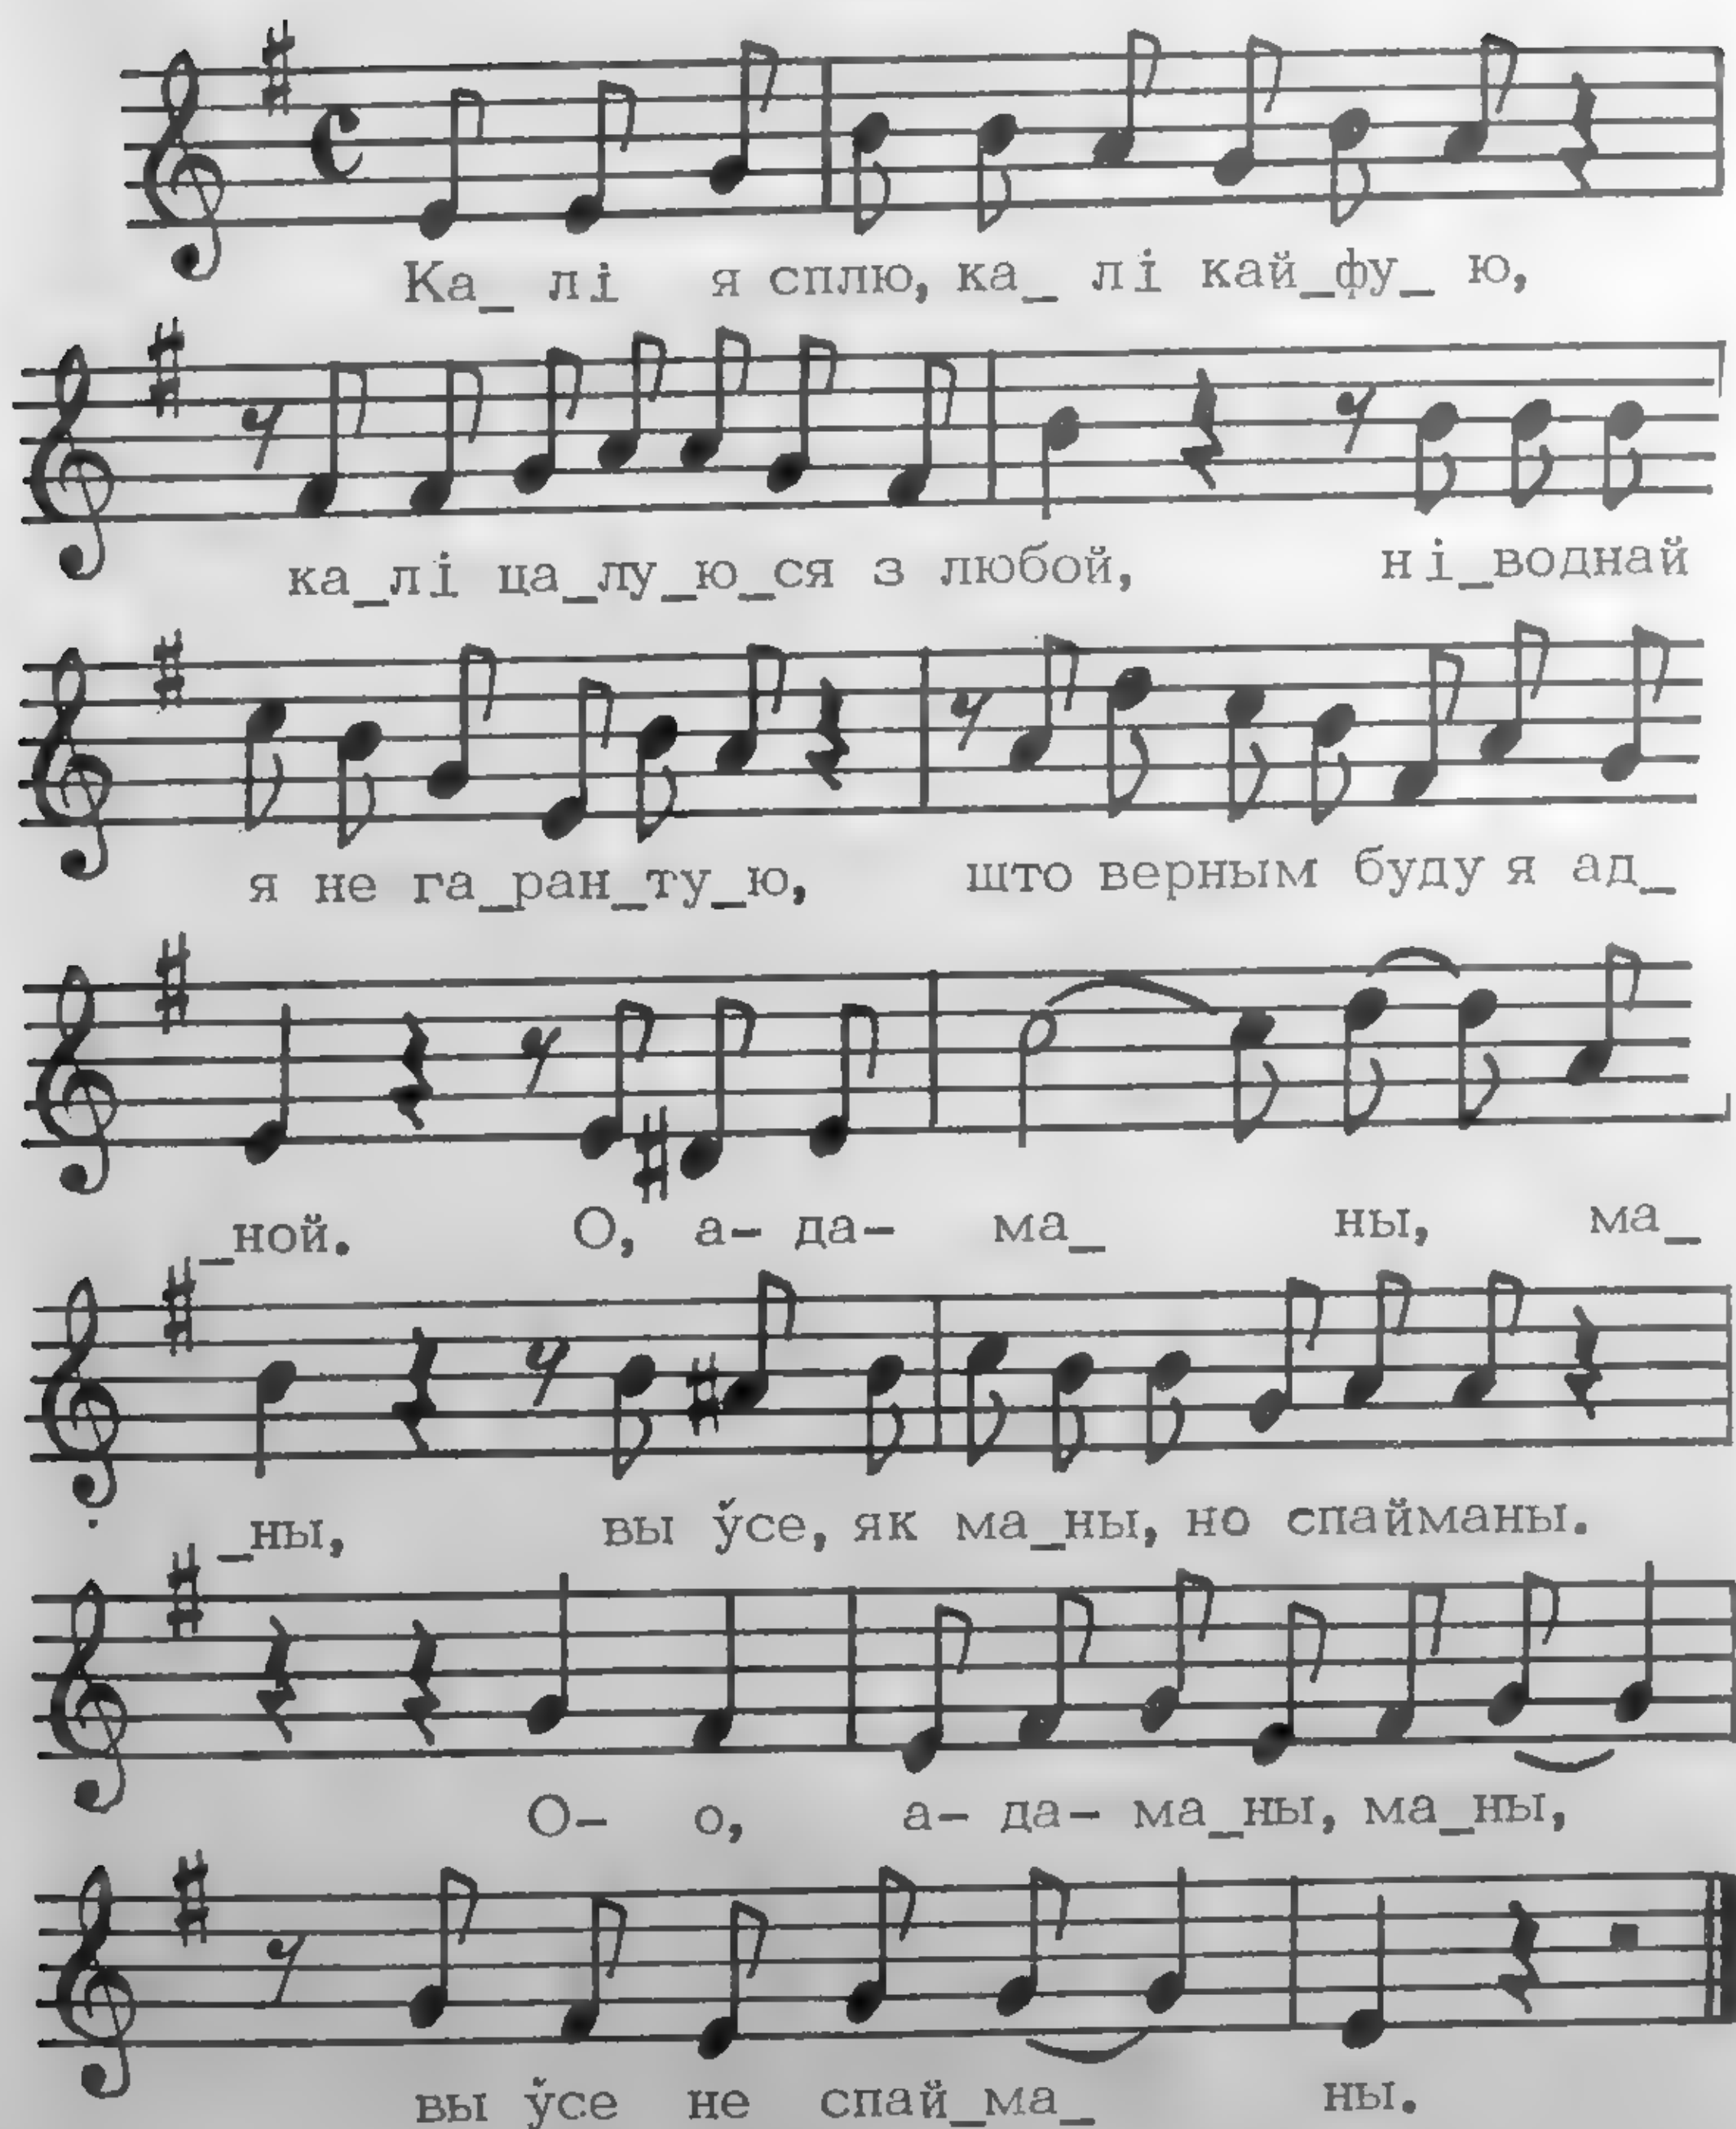 Ка_ лі я сплю, ка_ лі кай_фу_ ю,
ка_лі ца_лу_ю_ся з любой, ні_воднай
я не га_ран_ту_ю, што верным буду я ад_
_ной. О, а- да- ма_ ны, ма_
_ны, вы ўсе, як ма_ны, но спайманы.
О- о, а- да- ма_ны, ма_ны,
вы ўсе не спай_ма_ ны.